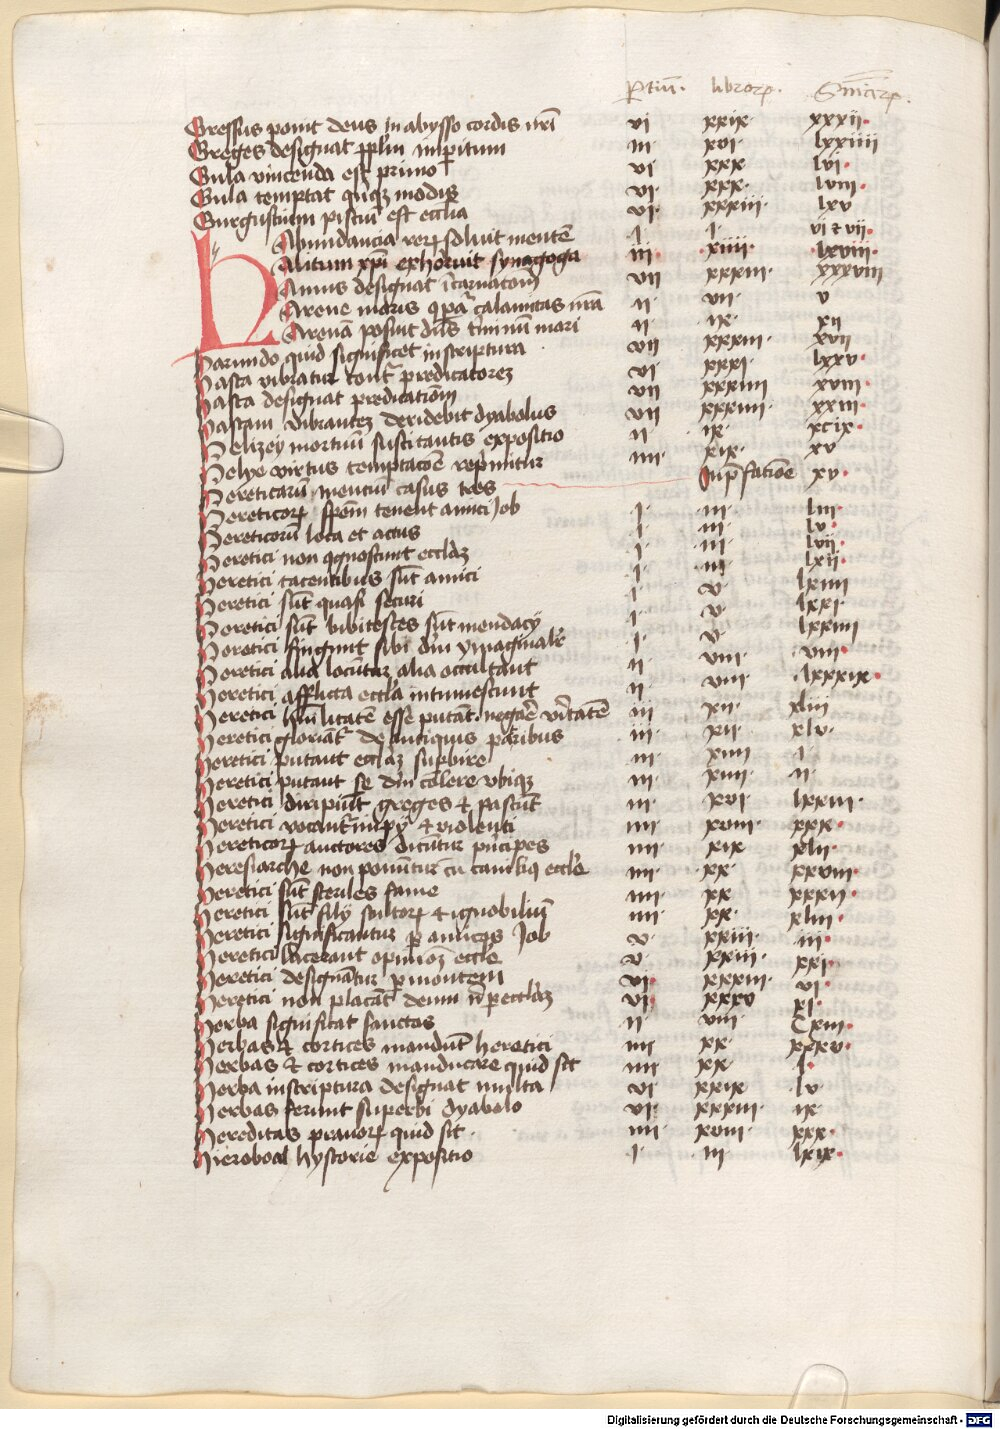 Partium. librorum. Sentenciarum.
Gressus ponit deus in abysso cordis nr̄i vi xxix xxxii
Greges designat pp̄lm imperitum iii xvi lxxiiii
Gula vincenda est primo vi xxx lvi
Gula temptat quinque modis vi xxx lviii
Gurgustium pisciū est ecclia vi xxxiii lxv
Habundancia rerum soluit mentē i i vi et vii
Halitum xp̄i exhorruit synagoga iii xiiii lxviii
Hamus designat incarnatōm vii xxxiii xxxviii
Harene maris comparatur calamitas nr̄a ii vii v
Harenā posuit dn̄s terminum mari ii ix xii
Harundo quid significet in scriptura vii xxxiii xvii
Hasta vibratur contra predicatores vi xxxi lxxv
Hasta designat predicatiōm vii xxxiiii xviii
Hastam vibrantes deridebit dyabolus vii xxxiiii xxiii
Helizey mortuū suscitantis expositio ii ix xcix
Helye virtus temptacōe reprimitur iiii xix xv
Hereticarū mentiū casus tres In p̄fatiōe xv
Hereticorum spem tenent amici Job i iii liii
Hereticorū loca et actus i iii lv
Heretici non cognoscunt eccl̄am i iii lvii
Heretici tacentibus sūt amici i iii lxii
Heretici sūt quasi securi i v lxiiii
Heretici sūt bibitores sūt mendacy i v lxxi
Heretici fingunt sibi dm̄ ymaginale i v lxxiiii
Heretici alia locuntur alia occultant ii viii viii
Heretici afflicta eccl̄a intumescunt ii viii lxxxix
Heretici humilitatē esse putāt negare veritatē iii xii xliii
Heretici gloriātur de antiquis patribus iii xii xlv
Heretici putant eccl̄am superbire iii xiiii i
Heretici putant se dm̄ colere vbique iii xiiii ii
Heretici diripiūt greges et pascūt iii xvi lxxiii
Heretici vocantur impy et violenti iiii xviii xxx
Hereticorum auctores dicūtur principes iiii xix xlii
Heresiarche non ponūtur cū canibus eccl̄e iiii xx xxviii
Heretici sūt steriles fame iiii xx xxxii
Heretici sūt fily stultorum et ignobiliū iiii xx xliii
Heretici significantur per amicos Job v xxiii iii
Heretici lacerant opiniōem eccl̄e v xxiii xxi
Heretici designātur per montem vi xxxiii vi
Heretici non placāt deum nisi per eccl̄am vi xxxv xi
Herba significat sanctos ii viii Cxiii
Herbas et cortices mandūt heretici iiii xx xxxv
Herbas et cortices manducare quid sit iiii xx i
Herba in scriptura designat multa vi xxix lv
Herbas ferunt superbi dyabolo vi xxxiii ix
Hereditas prauorum quid sit iiii xviii xxx
Hieroboal hystorie expositio i iii lxix
Digitalisierung gefördert durch die Deutsche Forschungsgemeinschaft - DFG